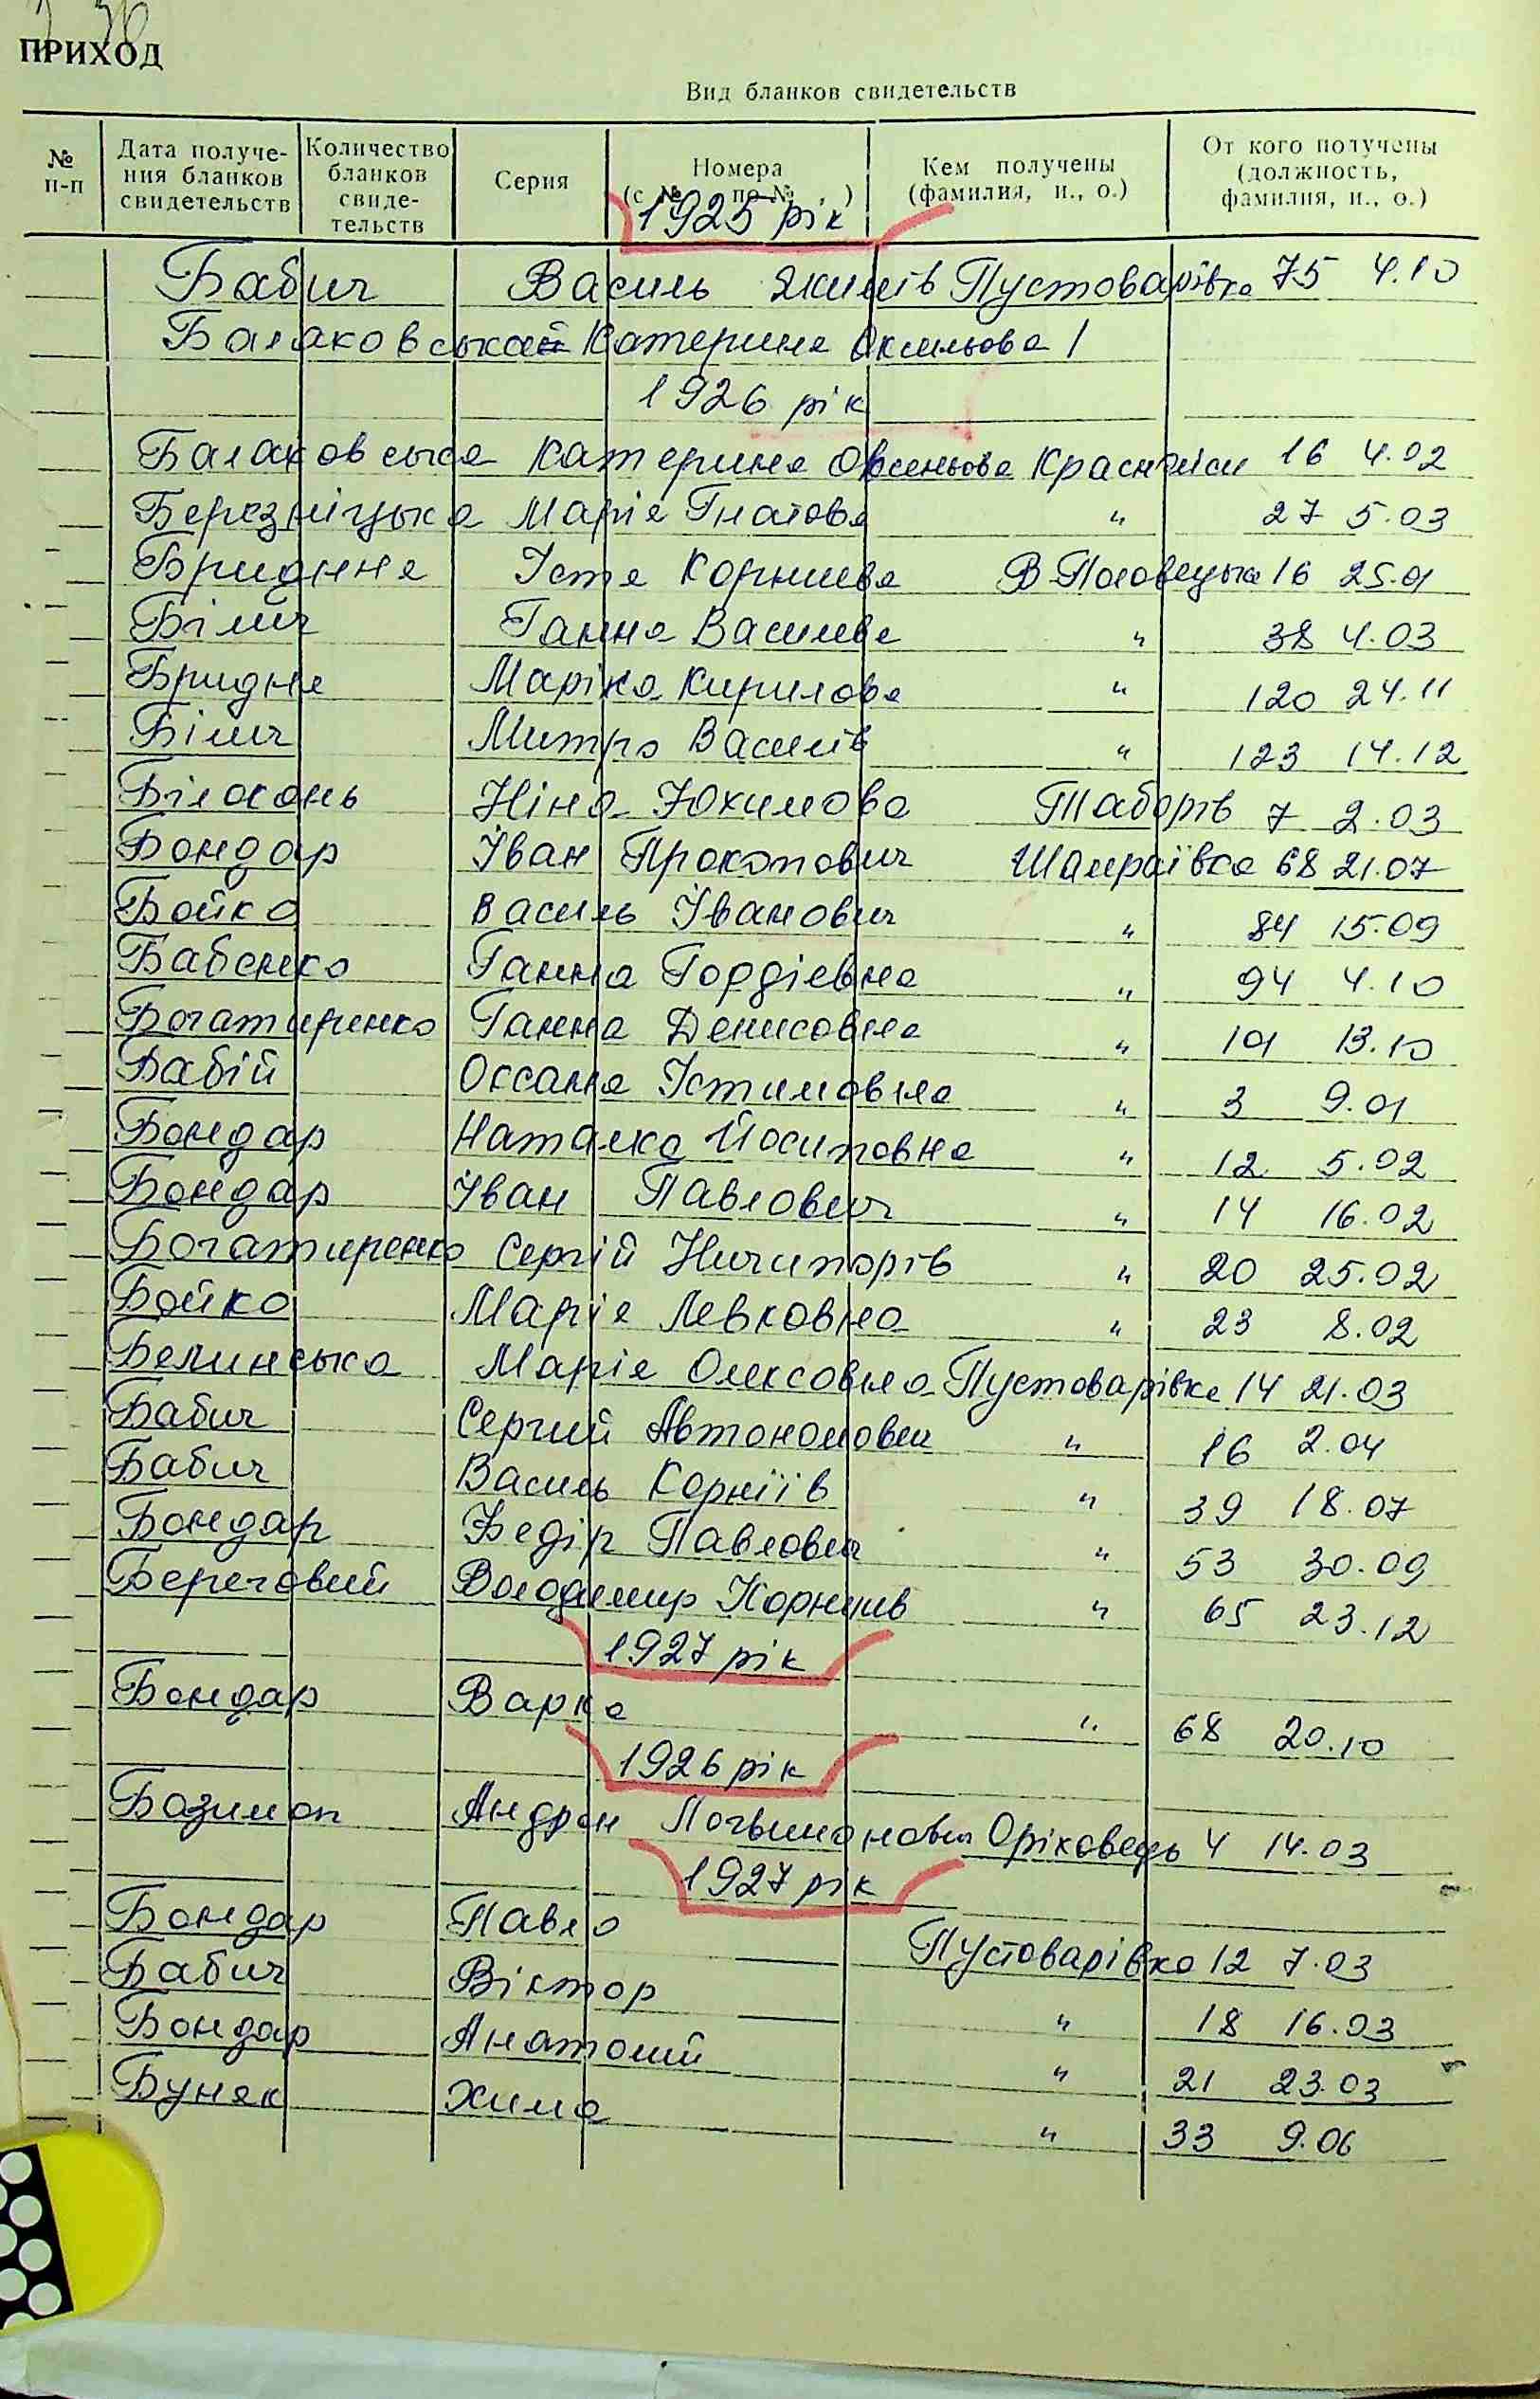 ПРИХОД
Вид бланков свидетельств
№ п-п
Дата получе-
ния бланков
свидетельств
Количество
бланков
свиде-
тельств
Серия
Номера
(с № по № )
Кем получены
(фамилия, и., о.)
От кого получены
(должность,
фамилия, и., о.)
1925 рік
Бабич Василь Якимів Пустоварівка 75 4.10
Балаковська Катерина /
1926 рік
Балаковська Катерина Овсеньова 16 4.02
Березніцька Марія Гнатова " 27 5.03
Бридння Устя Корниева В-Половецька 16 25.01
Білич Ганна Василева " 38 4.03
Бридня Маріка Кирилова " 120 24.11
Білич Митро Василів " 123 14.12
Білоконь Ніна Юхимова Таборів 7 2.03
Бондар Іван Прокопович Шамраївка 68 21.07
Бойко Василь Іванович " 84 15.09
Бабенко Ганна Гордіевна " 94 4.10
Богатиренко Ганна Денисовна " 101 13.10
Бабій Оксана Устимовна " 3 9.01
Бондар Наталка Йосиповна " 12 5.02
Бондар Іван Павлович " 14 16.02
Богатиренко Сергій Ничипорів " 20 25.02
Бойко Марія Левковна " 23 8.02
Белинська Марія Олексовна Пустоварівка 14 21.03
Бабич Сергий Автономович " 16 2.04
Бабич Василь Корніїв " 39 18.07
Бондар Федір Павлович " 53 30.09
Береговий Володимир Корниив " 65 23.12
1927 рік
Бондар Варка " 68 20.10
1926 рік
Андрон Оріховець 4 14.03
1927 рік
Бондар Павло Пустоварівка 12 7.03
Бабич Віктор " 18 16.03
Бондар Анатолий " 21 23.03
Буняк Хима " 33 9.06